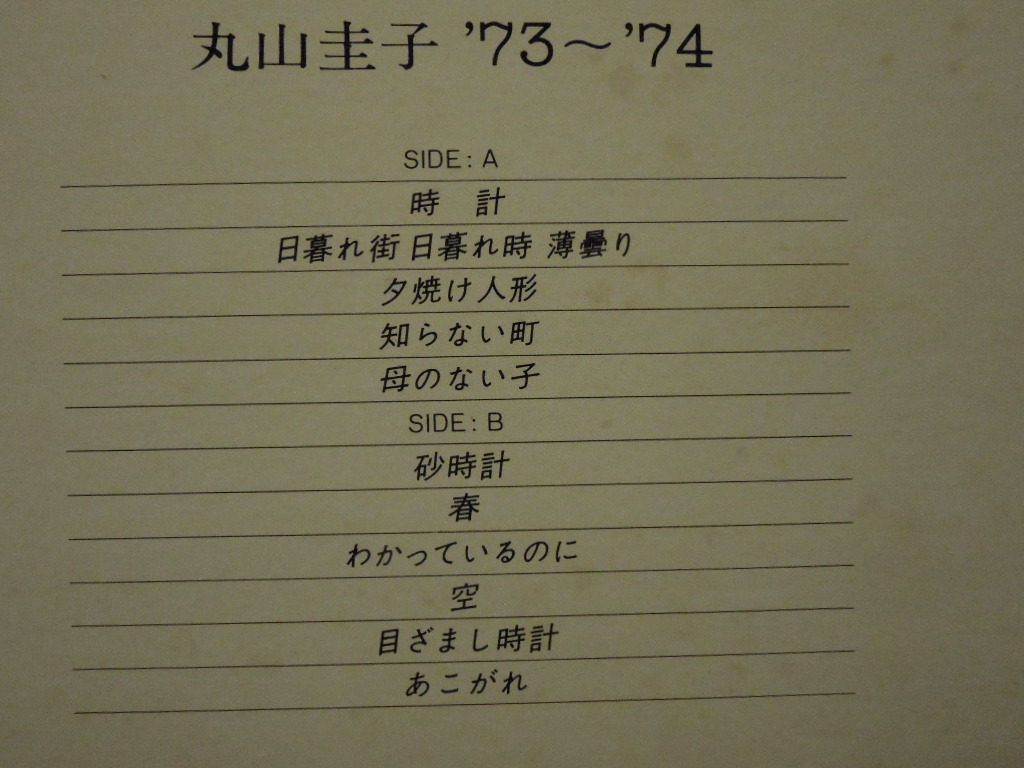 丸山圭子 '73～'74
SIDE: A
時　計
日暮れ街 日暮れ時 薄曇り
夕焼け人形
知らない町
母のない子
SIDE: B
砂時計
春
わかっているのに
空
目ざまし時計
あこがれ